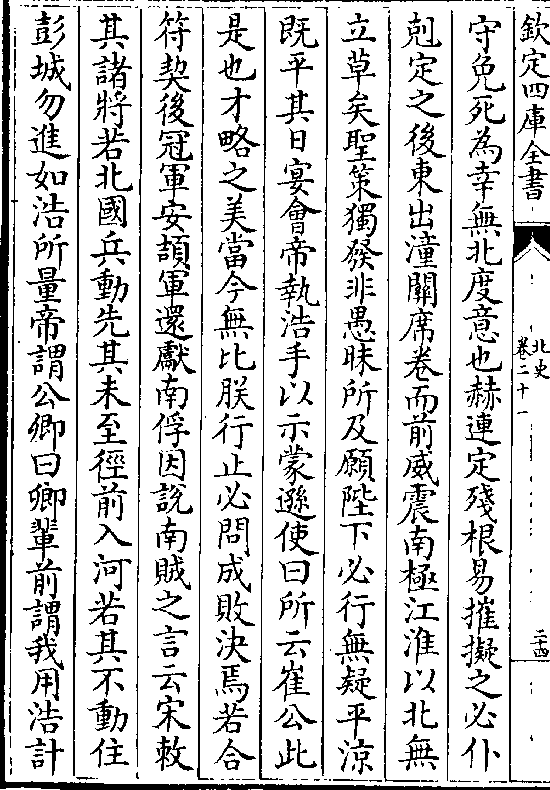 欽定四庫全書
北史
卷二十一
二四
守免死為幸無北度意也赫連定殘根易摧擬之必仆
剋定之後東出潼關席卷而前威震南極江淮以北無
立草矣聖策獨發非愚昧所及願陛下必行無疑平涼
既平其日宴會帝執浩手以示蒙遜使曰所云崔公此
是也才略之美當今無比朕行止必問成敗決焉若合
符契後冠軍安頡軍還獻南俘因說南賊之言云宋敕
其諸將若北國兵動先其未至徑前入河若其不動住
彭城勿進如浩所量帝謂公卿曰卿輩前謂我用浩計